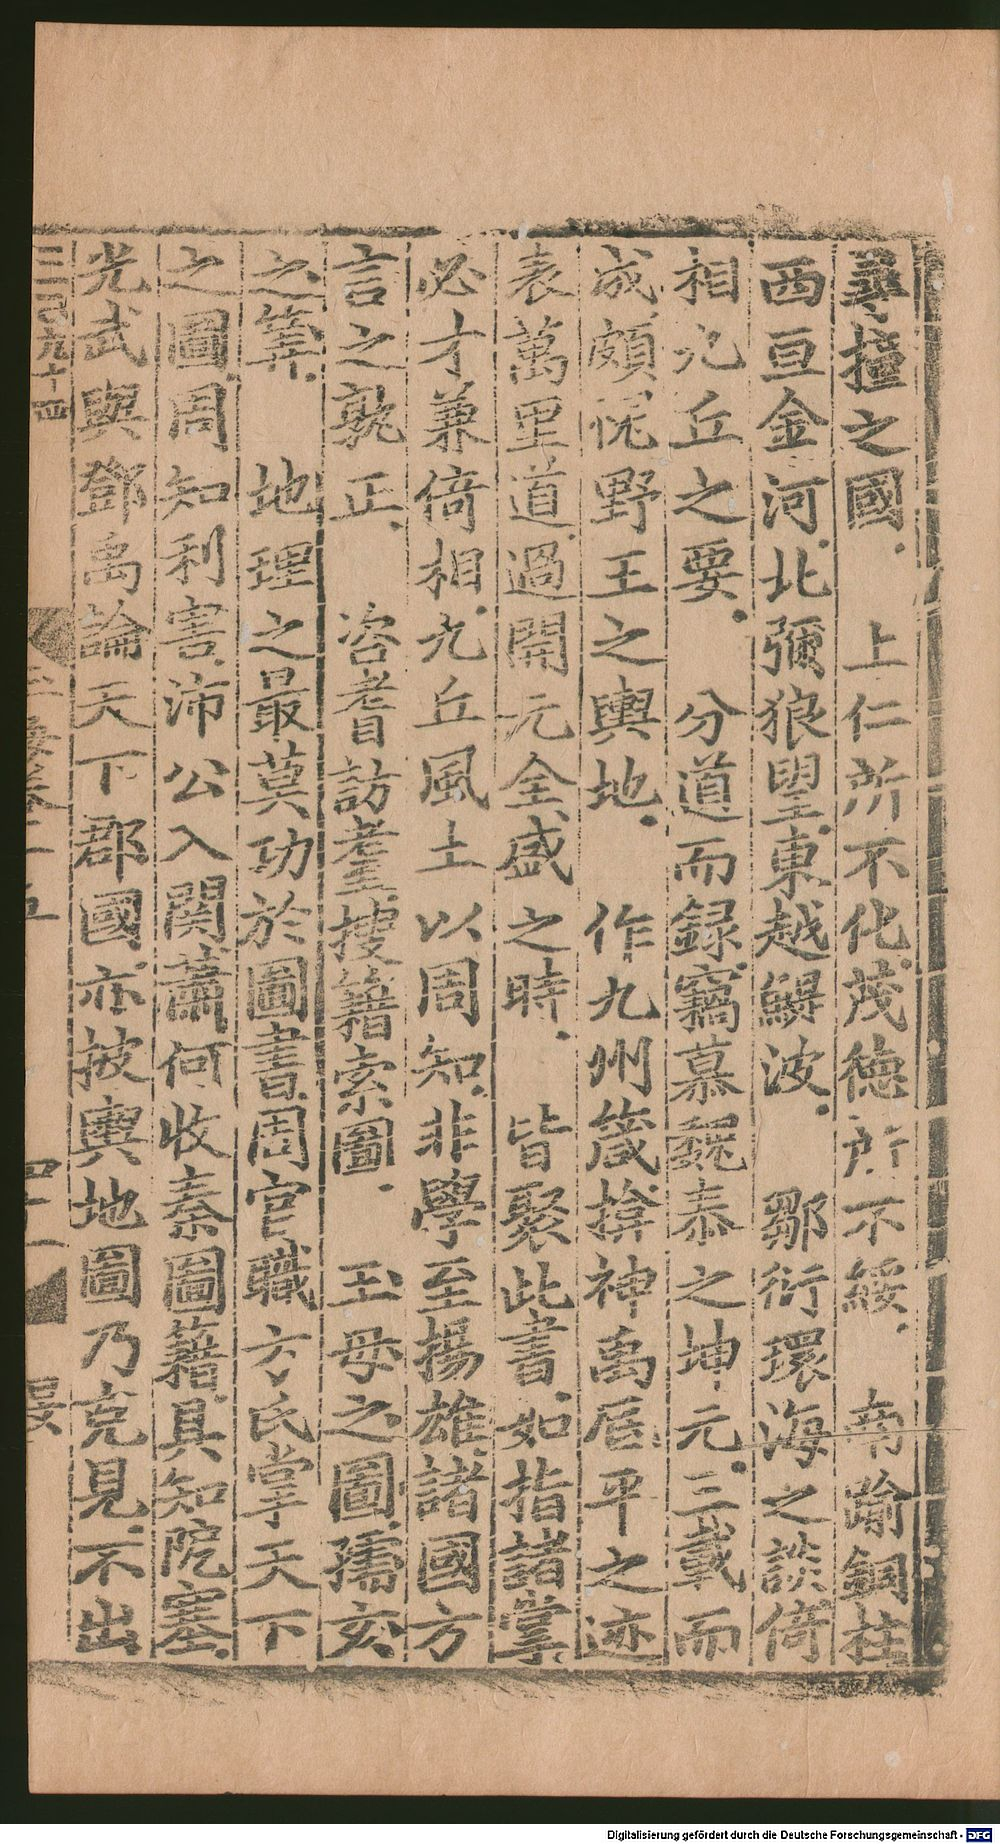 尋撞之國。上仁所不化茂德所不綏。南踰銅柱
西亘金河北彌狼望東越鯷波。鄒衍環海之談倚
相九丘之要。分道而録竊慕魏泰之坤元三載而
成頗愧野王之輿地。作九州箴揜神禹
平之迹
表萬里道過開元全盛之時。皆聚此書如指諸掌
必才兼倚相九丘風土以周知非學至揚雄諸國方
言之孰正。咨耆訪耋搜籍索圖。玉母之圖孺亥
之筭。地理之最莫功於圖書周官職方氏掌天下
之圖周知利害沛公入関蕭何收秦圖籍具知阨塞
光武與鄧禹論天下郡國亦披輿地圖乃克見不出
三百九十四
晏
Digitalisierung gefördert durch die Deutsche Forschungsgemeinschaft - DFG